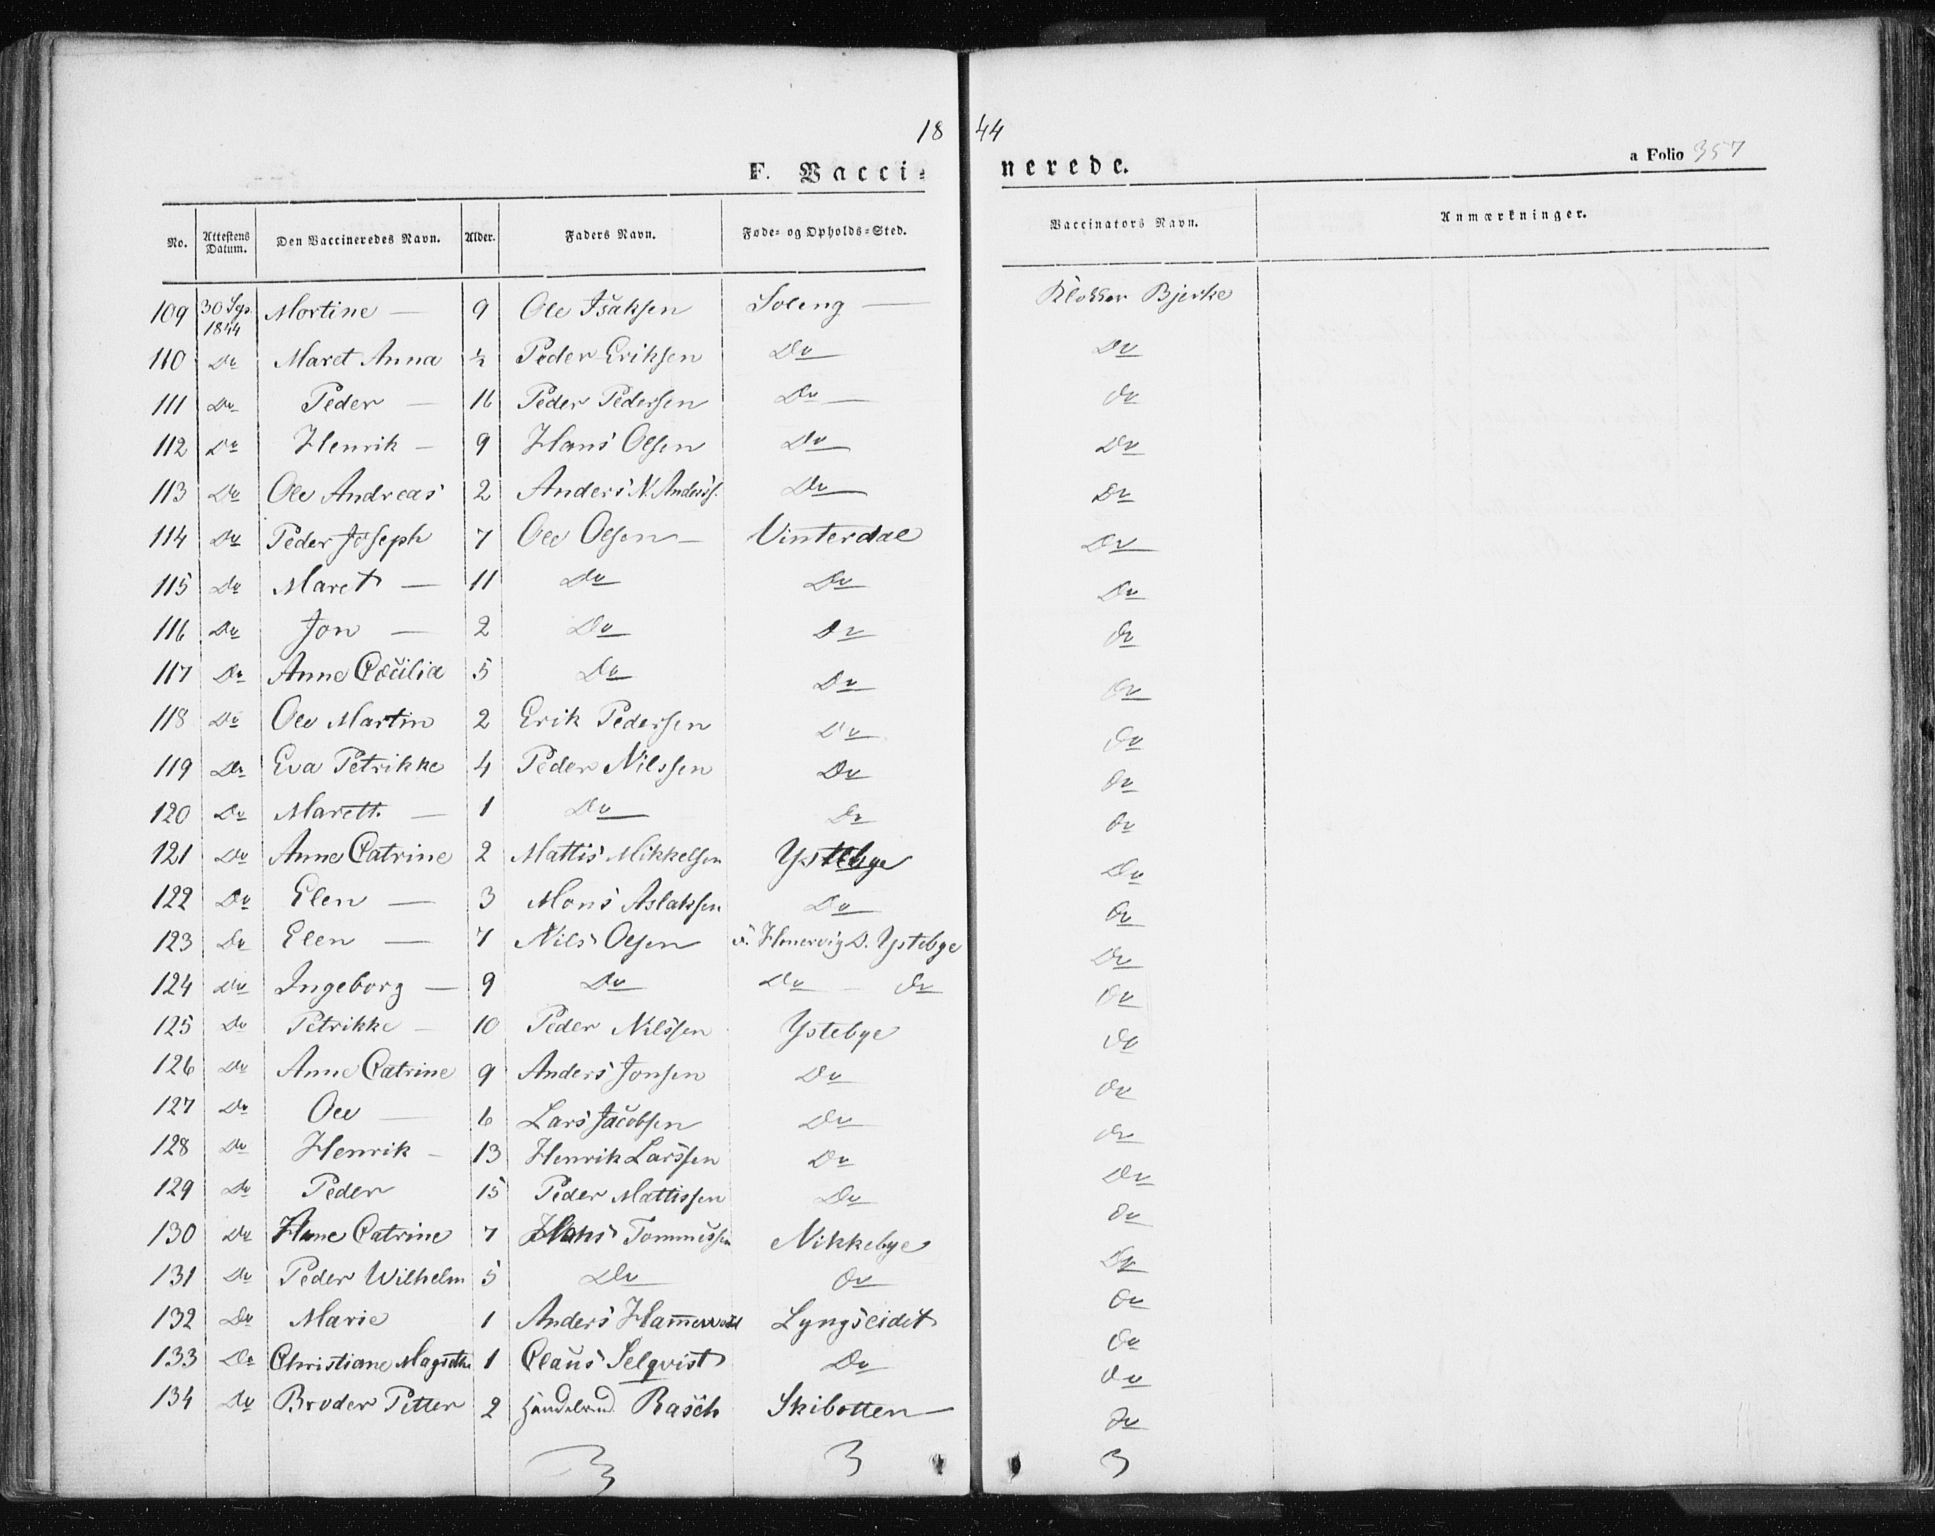 18 44
F. Vaccinerede.
a Folio 357
No. Attestens Datum. Den Vaccineredes Navn. Alder. Faders Navn. Føde- og Opholds-Sted. Vaccinators Navn. Anmærkninger.
109 30 Sep. 1844 Mortine — 9 Ole Isaksen Soleng — Klokker Bjerke
110 Do Maret Anna ½ Peder Eriksen Do Do
111 Do Peder — 16 Peder Pedersen Do — Do
112 Do Henrik — 9 Hans Olsen Do Do
113 Do Ole Andreas 2 Anders N. Anderss. Do Do
114 Do Peder Joseph 7 Ole Olsen — Vinterdal Do
115 Do Maret — 11 Do Do Do
116 Do Jon — 2 Do Do Do
117 Do Anne Cæcilia 5 Do Do Do
118 Do Ole Martin 2 Erik Pedersen Do Do
119 Do Eva Petrikke 4 Peder Nilssen Do Do
120 Do Marett. — 1 Do Do Do
121 Do Anne Catrine 2 Mattis Mikkelsen Ystebye Do
122 Do Elen — 3 Mons Aslaksen Do Do
123 Do Elen — 7 Nils Olsen Ystebye Do
124 Do Ingeborg — 9 Do Do — do Do
125 Do Petrikke — 10 Peder Nilssen Ystebye Do
126 Do Anne Catrine 9 Anders Jonsen Do Do
127 Do Ole — 6 Lars Jacobsen Do Do
128 Do Henrik — 13 Henrik Larssen Do Do
129 Do Peder 15 Peder Mattissen Do Do
130 Do Catrine 7 Hans Tommessen Nikkebye Do
131 Do Peder Wilhelm 5 Do Do Do
132 Do Marie 1 Anders Lyngseidet Do
133 Do Christiane 1 Claus Selqvist Do Do
134 Do Broder Petter 2 Rasch Skibotten — Do